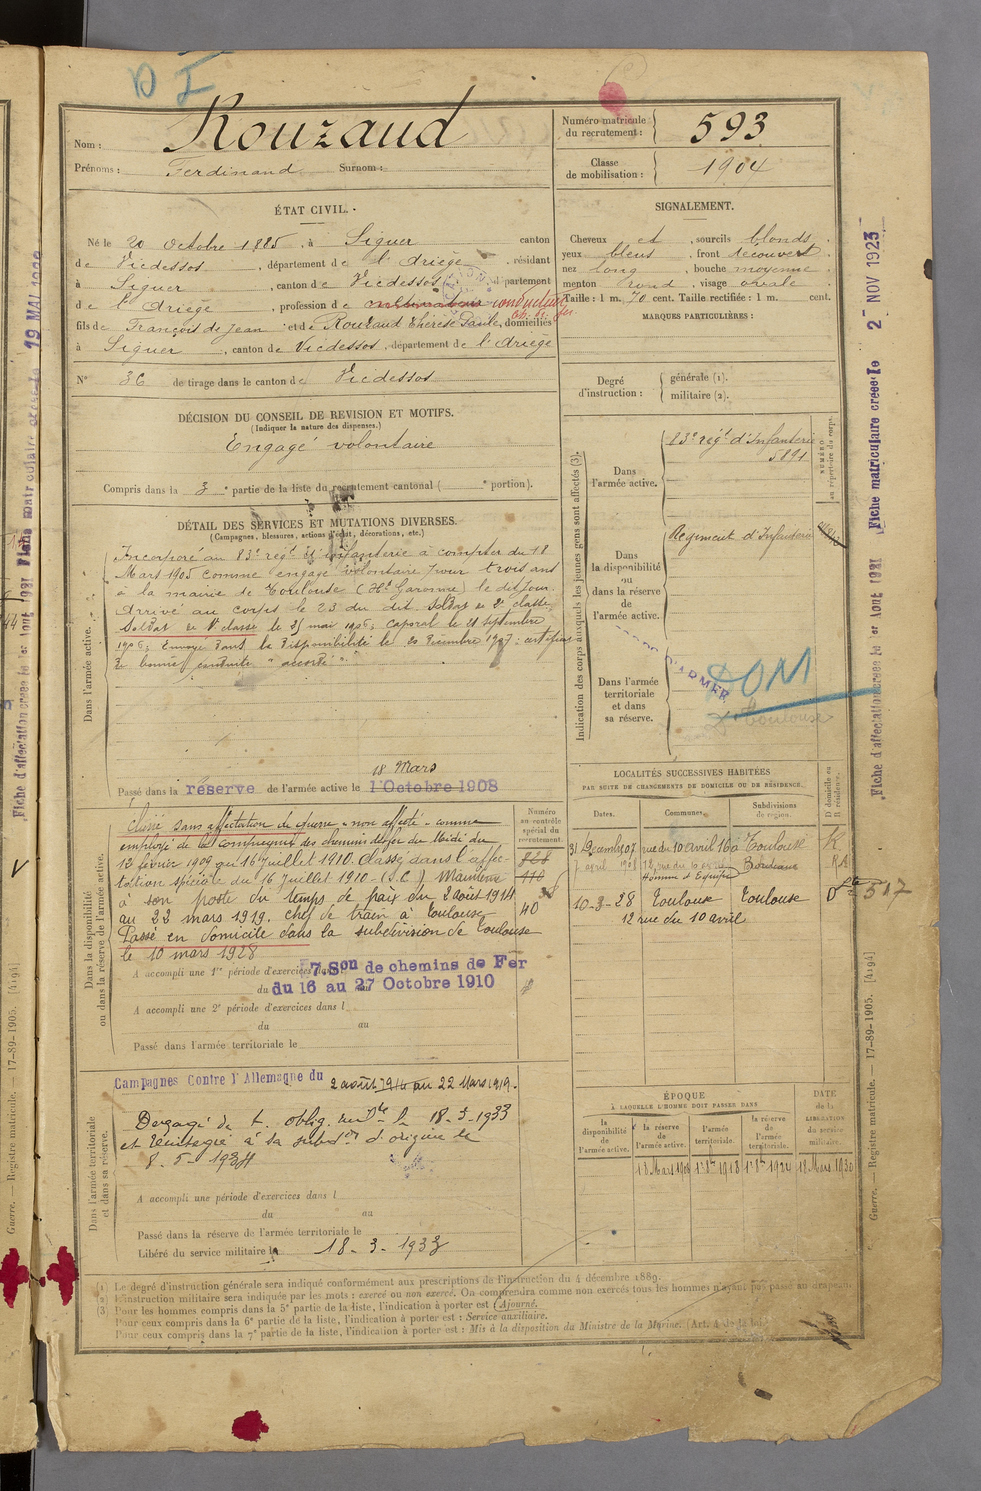 D I
Nom : Rouzaud
Prénoms : Ferdinand Surnom :
Numéro matricule du recrutement : 593
Classe de mobilisation : 1904
ÉTAT CIVIL.
Né le 20 Octobre 1885, à Siguer canton
de Vicdessos, département de l'Ariège, résidant
à Siguer, canton de Vicdessos, département
de l'Ariège, profession de conducteur
fils de François de Jean et de Rouzaud Thérèse Paule, domiciliés
à Siguer, canton de Vicdessos, département de l'Ariège
N° 36 de tirage dans le canton de Vicdessos
SIGNALEMENT.
Cheveux et, sourcils blonds
yeux bleus, front découvert
nez long, bouche moyenne
menton rond, visage ovale
Taille : 1 m. 70 cent. Taille rectifiée : 1 m. cent.
MARQUES PARTICULIÈRES :
Degré d'instruction : générale (1).
militaire (2).
DÉCISION DU CONSEIL DE REVISION ET MOTIFS.
(Indiquer la nature des dispenses.)
Engagé volontaire
Compris dans la 3e partie de la liste du recrutement cantonal ( e portion).
DÉTAIL DES SERVICES ET MUTATIONS DIVERSES.
(Campagnes, blessures, actions d'éclat, décorations, etc.)
Dans l'armée active.
Incorporé au 83e régt d'infanterie à compter du 18
Mars 1905 comme engagé volontaire pour trois ans
à la mairie de Toulouse (Hte Garonne) le dit jour.
Arrivé au corps le 23 du dit. Soldat de 2e classe
Soldat de 1e classe le 25 mai 1906, caporal le 21 septembre
1906. Envoyé dans la disponibilité le 20 décembre 1907 : certificat
de bonne conduite "accordé".
18 Mars
Passé dans la réserve de l'armée active le 1 Octobre 1908
Dans la disponibilité ou dans la réserve de l'armée active.
Classé sans affectation de guerre "non affecté" comme
employé de la compagnie des chemins de fer du Midi du
12 février 1909 au 16 juillet 1910. Classé dans l'affec-
tation spéciale du 16 Juillet 1910 - (S.C.) Maintenu
à son poste du temps de paix du 2 août 1914
au 22 mars 1919. chef de train à Toulouse
Passé en domicile dans la subdivision de Toulouse
le 10 mars 1928
A accompli une 1re période d'exercices dans
7 Son de chemins de Fer
du 16 au 27 Octobre 1910
A accompli une 2e période d'exercices dans l
du au
Passé dans l'armée territoriale le
Numéro au contrôle spécial du recrutement.
828
110
40
Dans l'armée territoriale et dans sa réserve.
Campagnes Contre l'Allemagne du 2 août 1914 au 22 Mars 1919.
Dégagé de t. oblig. milre le 18-3-1933
et réintégré à sa subdon d'origine le
8-5-1934
A accompli une période d'exercices dans l
du au
Passé dans la réserve de l'armée territoriale le
Libéré du service militaire le 18-3-1933
Indication des corps auxquels les jeunes gens sont affectés (3).
Dans l'armée active.
83e régt d'Infanterie
5891
NUMÉRO au répertoire du corps.
Dans la disponibilité ou dans la réserve de l'armée active.
Régiment d'Infanterie
Dans l'armée territoriale et dans sa réserve.
DOM
Toulouse
LOCALITÉS SUCCESSIVES HABITÉES
PAR SUITE DE CHANGEMENTS DE DOMICILE OU DE RÉSIDENCE.
Dates. Communes. Subdivisions de région. D domicile ou R résidence.
31 Décemb 07 rue du 10 avril 160 Toulouse R
7 avril 1908 12, rue du 10 avril Bordeaux
10-3-28 Toulouse Toulouse D 517
12 rue du 10 avril
ÉPOQUE
À LAQUELLE L'HOMME DOIT PASSER DANS
la disponibilité de l'armée active. la réserve de l'armée active. l'armée territoriale. la réserve de l'armée territoriale. DATE de la LIBÉRATION du service militaire.
18 Mars 1908 1er 8bre 1918 1er 8bre 1924 18 Mars 1930
(1) Le degré d'instruction générale sera indiqué conformément aux prescriptions de l'instruction du 4 décembre 1889.
(2) L'instruction militaire sera indiquée par les mots : exercé ou non exercé. On comprendra comme non exercés tous les hommes n'ayant pas passé au drapeau.
(3) Pour les hommes compris dans la 5e partie de la liste, l'indication à porter est : Ajourné.
Pour ceux compris dans la 6e partie de la liste, l'indication à porter est : Service auxiliaire.
Pour ceux compris dans la 7e partie de la liste, l'indication à porter est : Mis à la disposition du Ministre de la Marine.
Fiche matriculaire créée le 2 NOV 1923
Fiche d'affectation créée le 1er Août 1931
Guerre. — Registre matricule. — 17-89-1905. [4194]
Fiche matriculaire créée le 19 MAI 1922
Fiche d'affectation créée le 1er Août 1931
Guerre. — Registre matricule. — 17-89-1905. [4194]